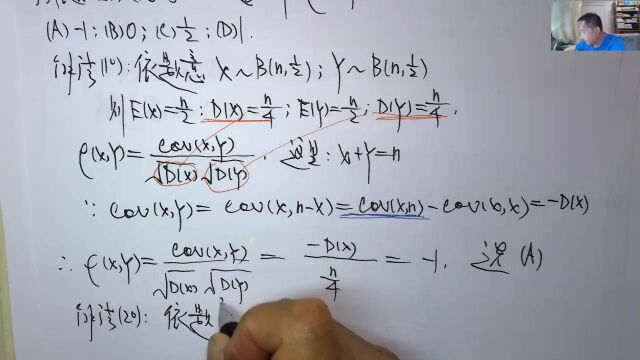 (A)-1; (B)0; (C)1/2; (D)1.
解法(1°): 依题意 X~B(n,1/2); Y~B(n,1/2)
则 E(X)=n/2; D(X)=n/4; E(Y)=n/2; D(Y)=n/4.
ρ(X,Y)=Cov(X,Y)/(√D(X)√D(Y)). 注意: X+Y=n
∵ Cov(X,Y)=Cov(X,n-X)=Cov(X,n)-Cov(X,X)=-D(X)
∴ ρ(X,Y)=Cov(X,Y)/(√D(X)√D(Y))=-D(X)/(n/4)=-1. 选(A)
解法(2°): 依题意